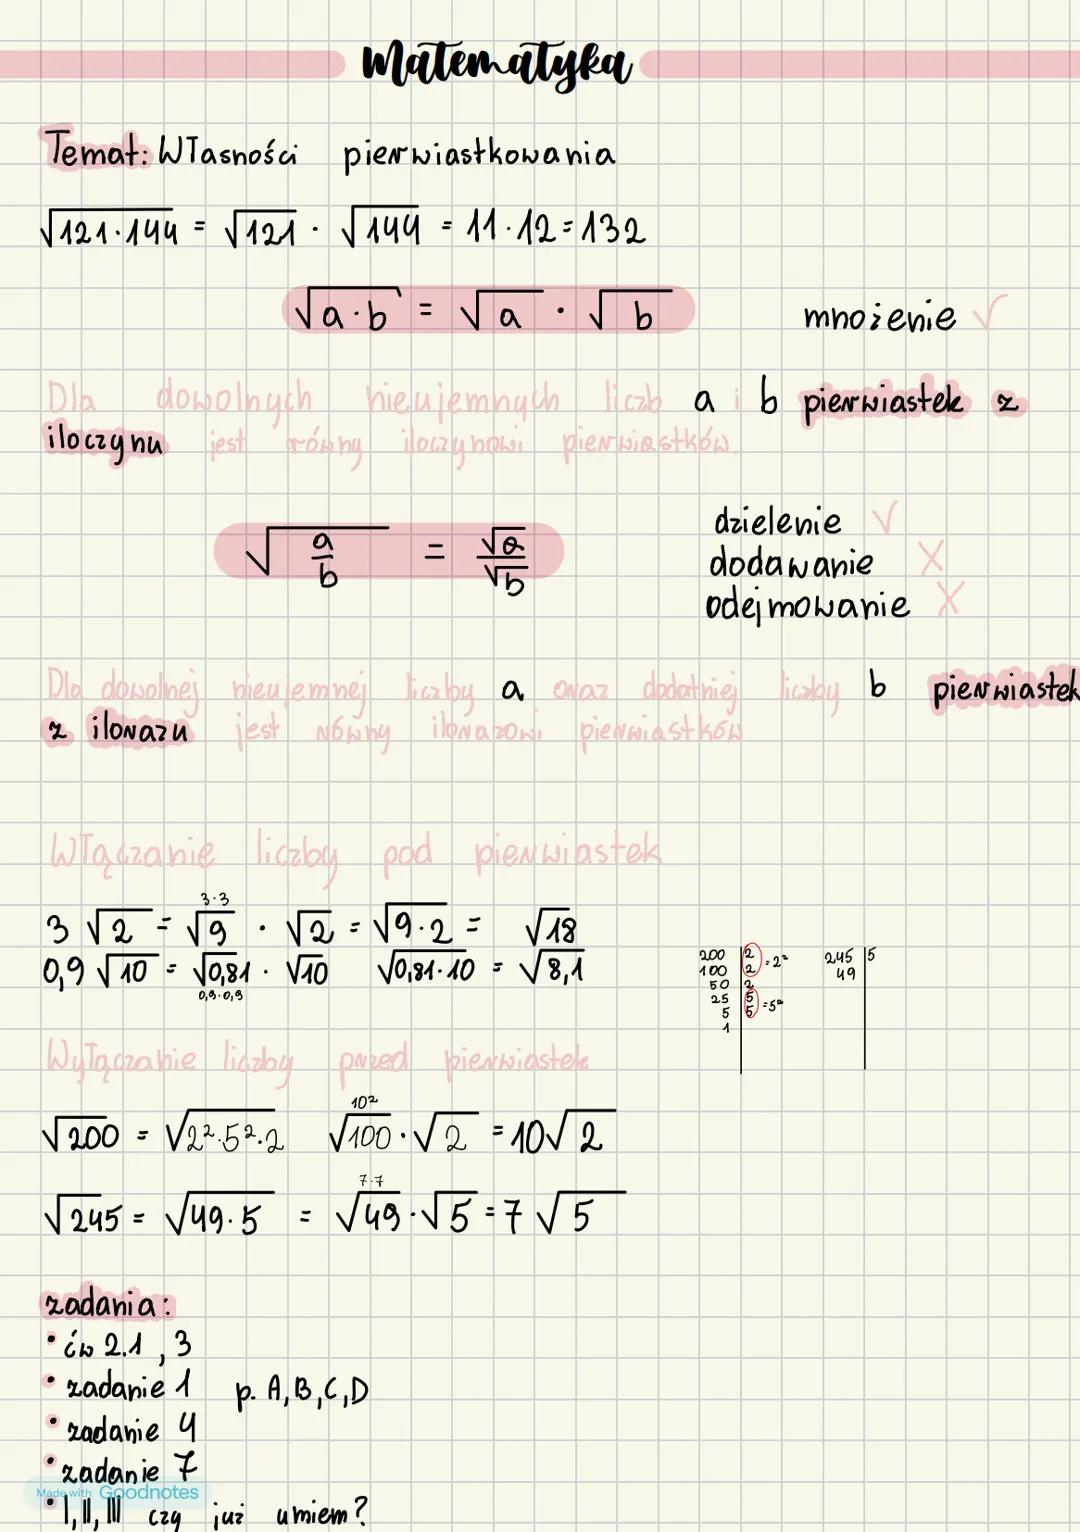 Matematyka
Temat: Własności pierwiastkowania
√121·144 = √121 · √144 = 11·12=132
√a·b = √a · √b mnożenie √
Dla dowolnych nieujemnych liczb a i b pierwiastek z
iloczynu jest równy iloczynowi pierwiastków.
√a/b = √a/√b
dzielenie √
dodawanie X
odejmowanie X
Dla dowolnej nieujemnej liczby a oraz dodatniej liczby b pierwiastek
z ilorazu jest równy ilorazowi pierwiastków
Włączanie liczby pod pierwiastek
3·3
3 √2 = √9 · √2 = √9·2 = √18
0,9 √10 = √0,81 · √10 √0,81·10 = √8,1
0,9·0,9
200 | 2 = 2² 245 | 5
100 | 2 49
50 | 2
25 | 5 = 5²
5 | 5
1
Wyłączanie liczby przed pierwiastek
10²
√200 = √2²·5²·2 √100·√2 = 10√2
7·7
√245 = √49·5 = √49·√5 = 7√5
zadania:
• ćw 2.1, 3
• zadanie 1 p. A,B,C,D
• zadanie 4
• zadanie 7
Made with Goodnotes
• I, II, III czy już umiem?